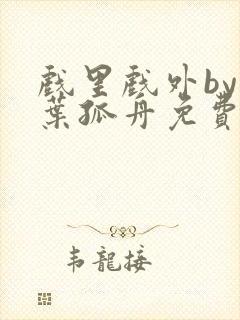 戲里戲外by
葉孤舟免費
韦龍接